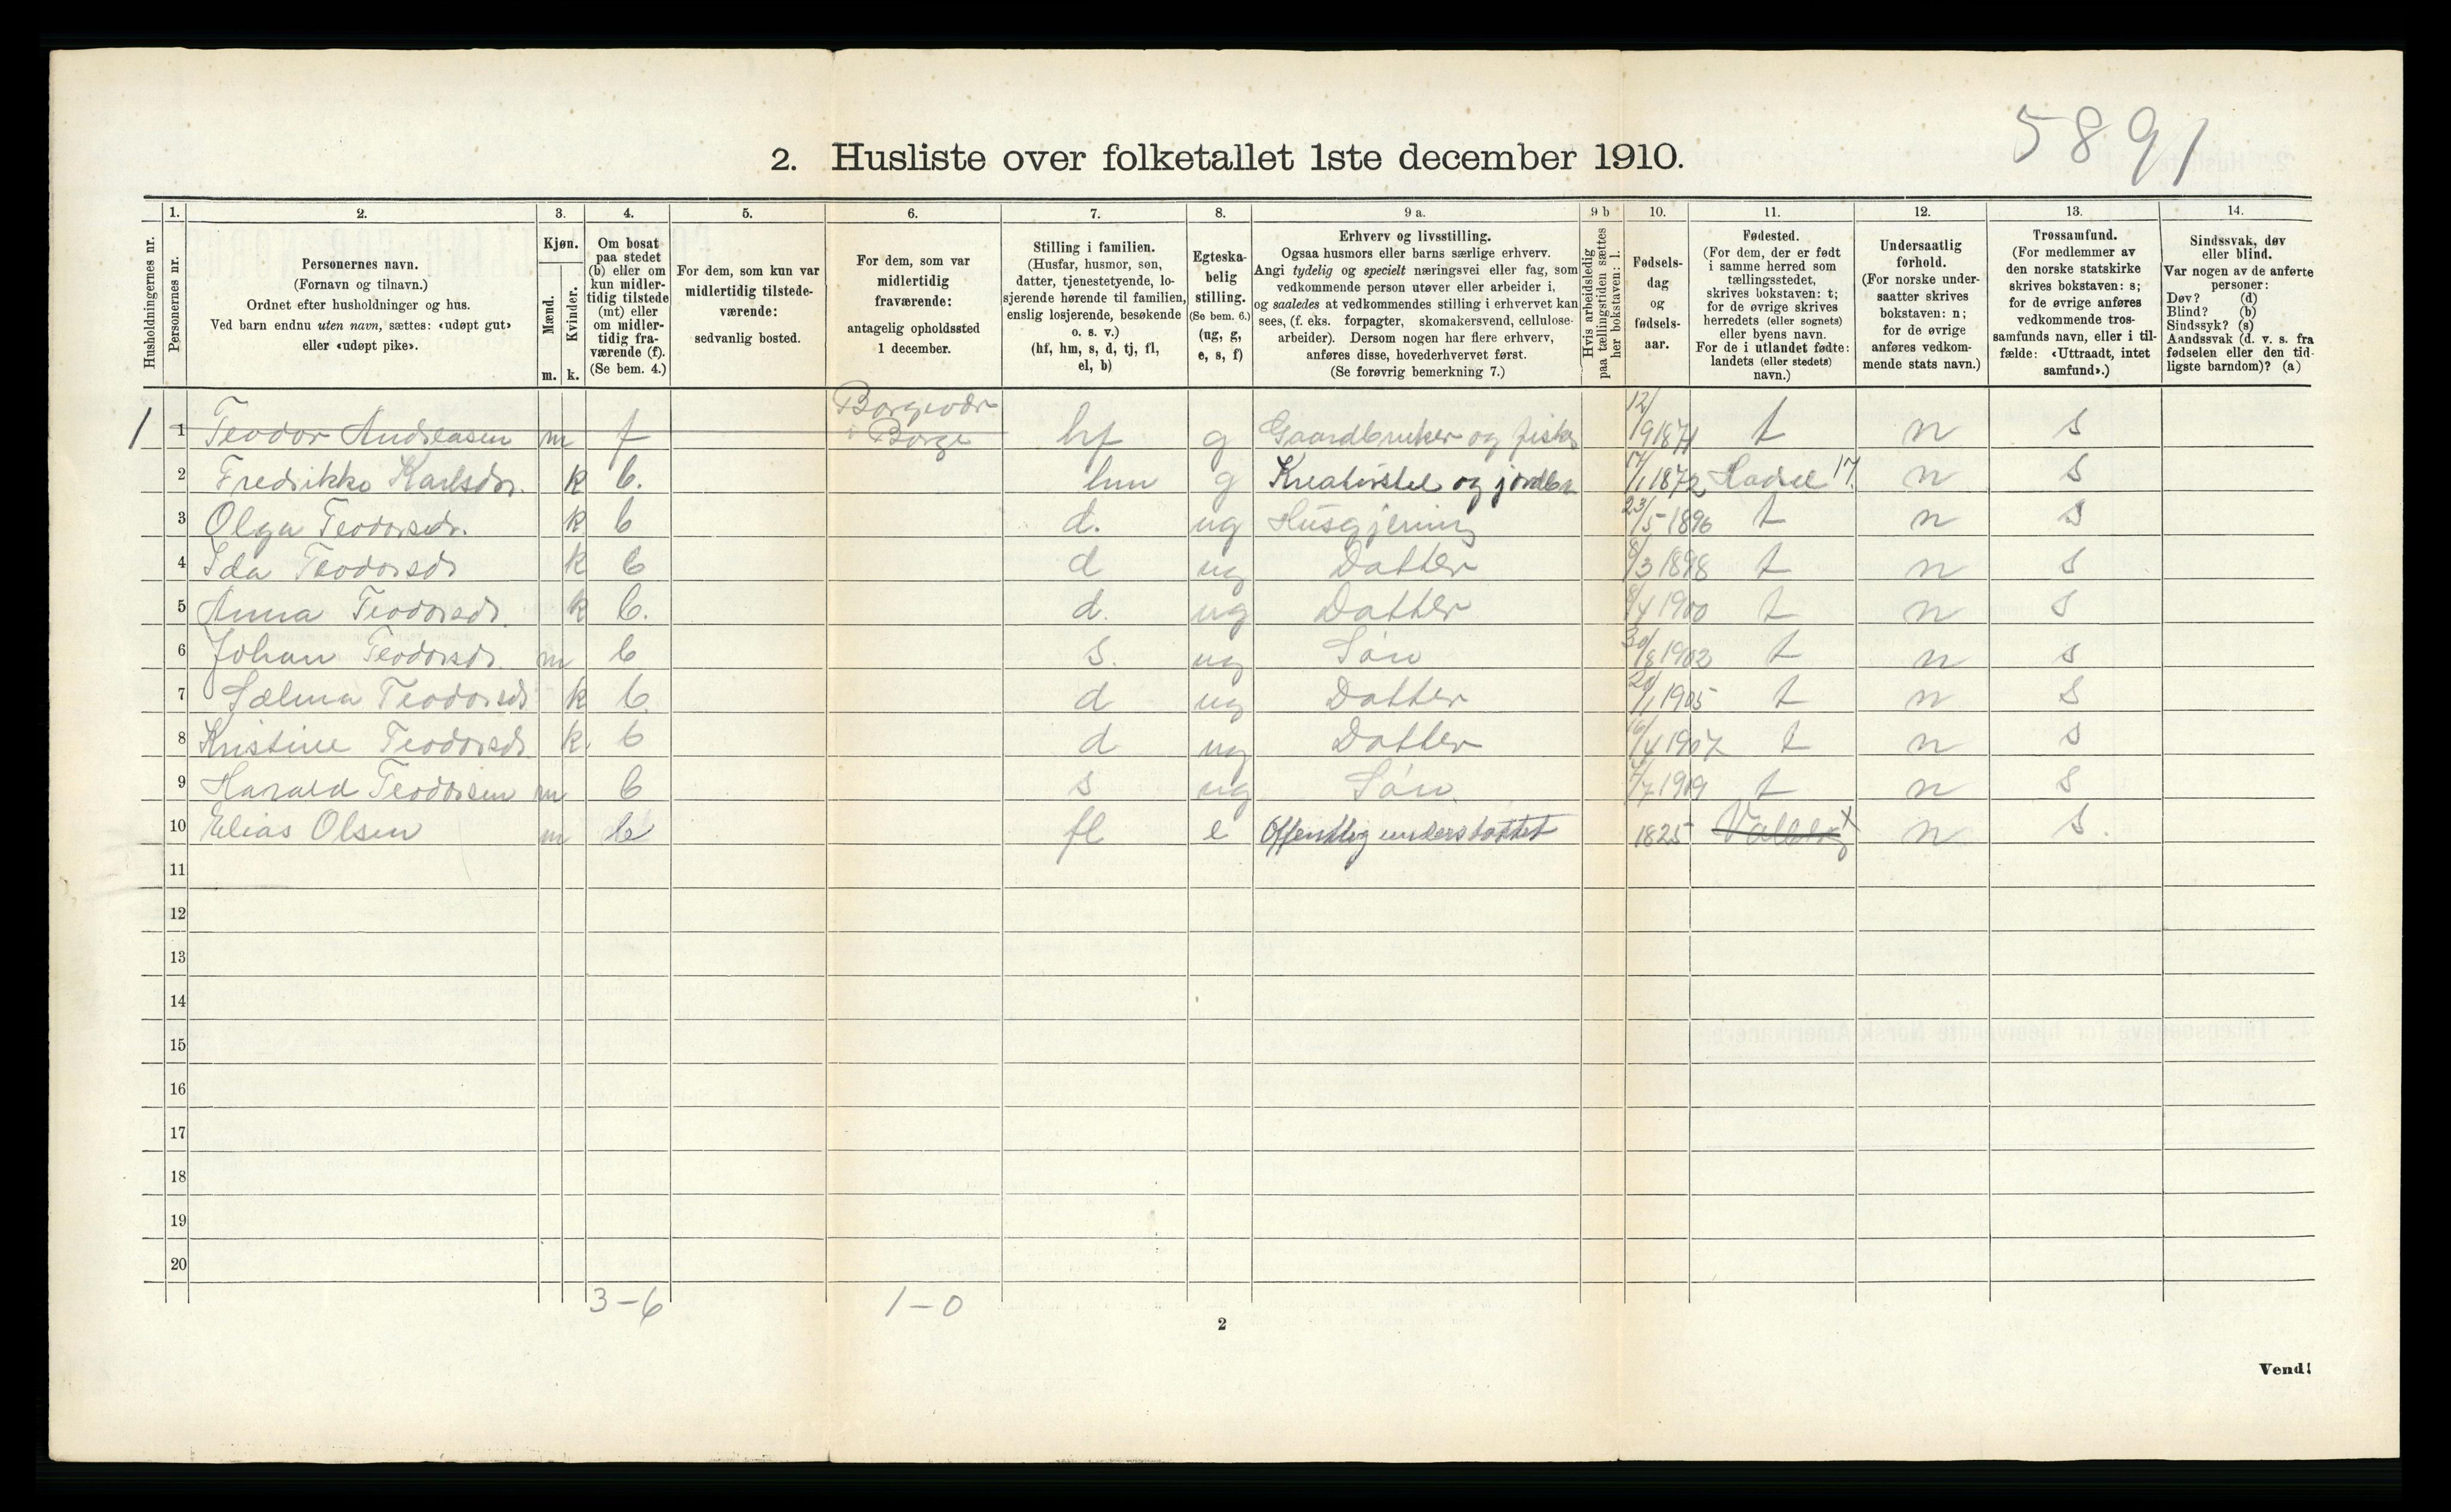 5891
2. Husliste over folketallet 1ste december 1910.
Husholdningernes nr.
1.
Personernes nr.
2.
Personernes navn.
(Fornavn og tilnavn.)
Ordnet efter husholdninger og hus.
Ved barn endnu uten navn, sættes: «udøpt gut»
eller «udøpt pike».
3.
Kjøn.
Mænd.
Kvinder.
m.
k.
4.
Om bosat
paa stedet
(b) eller om
kun midler-
tidig tilstede
(mt) eller
om midler-
tidig fra-
værende (f).
(Se bem. 4.)
5.
For dem, som kun var
midlertidig tilstede-
værende:
sedvanlig bosted.
6.
For dem, som var
midlertidig
fraværende:
antagelig opholdssted
1 december.
7.
Stilling i familien.
(Husfar, husmor, søn,
datter, tjenestetyende, lo-
sjerende hørende til familien,
enslig losjerende, besøkende
o. s. v.)
(hf, hm, s, d, tj, fl,
el, b)
8.
Egteska-
belig
stilling.
(Se bem. 6.)
(ug, g,
e, s, f)
9 a.
Erhverv og livsstilling.
Ogsaa husmors eller barns særlige erhverv.
Angi tydelig og specielt næringsvei eller fag, som
vedkommende person utøver eller arbeider i,
og saaledes at vedkommendes stilling i erhvervet kan
sees, (f. eks. forpagter, skomakersvend, cellulose-
arbeider). Dersom nogen har flere erhverv,
anføres disse, hovederhvervet først.
(Se forøvrig bemerkning 7.)
9 b
Hvis arbeidsledig
paa tællingstiden sættes
her bokstaven: l.
10.
Fødsels-
dag
og
fødsels-
aar.
11.
Fødested.
(For dem, der er født
i samme herred som
tællingsstedet,
skrives bokstaven: t;
for de øvrige skrives
herredets (eller sognets)
eller byens navn.
For de i utlandet fødte:
landets (eller stedets)
navn.)
12.
Undersaatlig
forhold.
(For norske under-
saatter skrives
bokstaven: n;
for de øvrige
anføres vedkom-
mende stats navn.)
13.
Trossamfund.
(For medlemmer av
den norske statskirke
skrives bokstaven: s;
for de øvrige anføres
vedkommende tros-
samfunds navn, eller i til-
fælde: «Uttraadt, intet
samfund».)
14.
Sindssvak, døv
eller blind.
Var nogen av de anførte
personer:
Døv? (d)
Blind? (b)
Sindssyk? (s)
Aandssvak (d. v. s. fra
fødselen eller den tid-
ligste barndom)? (a)
1 1 Teodor Andreasen m f Borgevær i Borge hf g Gaardbruker og fisker 12/9 1871 t n s
2 Fredrikke Karlsdr. k b. hm g Kreaturstel og jordbr 17/1 1872 Hadsel 17. n s
3 Olga Teodorsdr. k b d. ug Husgjerning 23/5 1896 t n s
4 Ida Teodorsdr k b d ug Datter 8/3 1898 t n s
5 Anna Teodorsdr. k b. d. ug Datter 8/4 1900 t n s
6 Johan Teodorsdr. m b s. ug Søn 30/8 1902 t n s
7 Sælma Teodorsdr k b. d ug Datter 20/1 1905 t n s
8 Kristine Teodorsdr. k. b d ug Datter 16/4 1907 t n s
9 Harald Teodorsen m b s ug Søn. /7 1909 t n s
10 Elias Olsen m b fl e Offentlig understøttet 1825 x n s.
11
12
13
14
15
16
17
18
19
20
3-6 1-0
2
Vend!